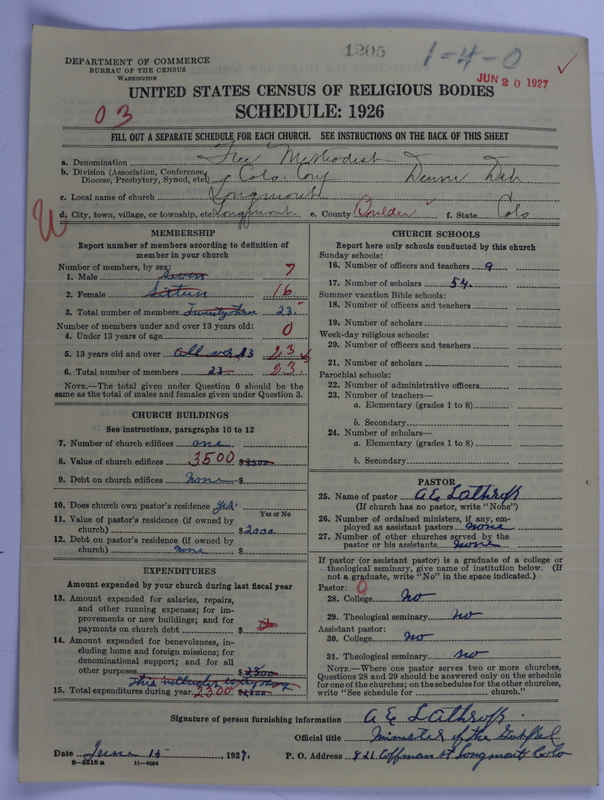 1205
1-4-0
DEPARTMENT OF COMMERCE
BUREAU OF THE CENSUS
WASHINGTON
JUN 20 1927
UNITED STATES CENSUS OF RELIGIOUS BODIES
03
SCHEDULE: 1926
FILL OUT A SEPARATE SCHEDULE FOR EACH CHURCH. SEE INSTRUCTIONS ON THE BACK OF THIS SHEET
a. Denomination Free Methodist
b. Division (Association, Conference, Diocese, Presbytery, Synod, etc.) Colo. Conf
c. Local name of church Longmont
d. City, town, village, or township, etc. Longmont e. County Boulder f. State Colo
MEMBERSHIP
Report number of members according to definition of
member in your church
Number of members, by sex:
1. Male Seven 7
2. Female Sixteen 16
3. Total number of members Twenty three 23
Number of members under and over 13 years old:
4. Under 13 years of age 0
5. 13 years old and over all over 13 23
6. Total number of members 23 23.
NOTE.—The total given under Question 6 should be the
same as the total of males and females given under Question 3.
CHURCH BUILDINGS
See instructions, paragraphs 10 to 12
7. Number of church edifices one
8. Value of church edifices 3500 $3500
9. Debt on church edifices None $
10. Does church own pastor's residence Yes
Yes or No
11. Value of pastor's residence (if owned by
church) $2000.
12. Debt on pastor's residence (if owned by
church) none $
EXPENDITURES
Amount expended by your church during last fiscal year
13. Amount expended for salaries, repairs,
and other running expenses; for im-
provements or new buildings; and for
payments on church debt $
14. Amount expended for benevolences, in-
cluding home and foreign missions; for
denominational support; and for all
other purposes $2300
This includes everything
15. Total expenditures during year 2300
CHURCH SCHOOLS
Report here only schools conducted by this church
Sunday schools:
16. Number of officers and teachers 9
17. Number of scholars 54.
Summer vacation Bible schools:
18. Number of officers and teachers
19. Number of scholars
Week-day religious schools:
20. Number of officers and teachers
21. Number of scholars
Parochial schools:
22. Number of administrative officers
23. Number of teachers—
a. Elementary (grades 1 to 8)
b. Secondary
24. Number of scholars—
a. Elementary (grades 1 to 8)
b. Secondary
PASTOR
25. Name of pastor A E Lathrop
(If church has no pastor, write "None")
26. Number of ordained ministers, if any, em-
ployed as assistant pastors none
27. Number of other churches served by the
pastor or his assistants none
If pastor (or assistant pastor) is a graduate of a college or
theological seminary, give name of institution below. (If
not a graduate, write "No" in the space indicated.)
Pastor: 0
28. College No
29. Theological seminary No
Assistant pastor:
30. College No
31. Theological seminary No
NOTE.—Where one pastor serves two or more churches,
Questions 28 and 29 should be answered only on the schedule
for one of the churches; on the schedules for the other churches,
write "See schedule for church."
Signature of person furnishing information A E Lathrop.
Official title Minister of the Gospel
Date June 15, 1927. P. O. Address 821 Coffman st Longmont Colo
8-5518 a 11-9054